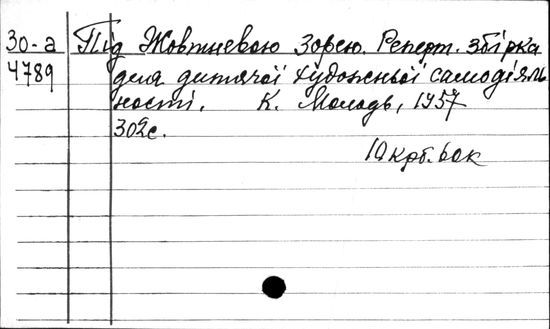 30-а Під Жовтневою Зорею. Реперт. збірка
4789 для дитячої художньої самодіяль
ності. К. Молодь, 1957
302с.
10 крб. 60к